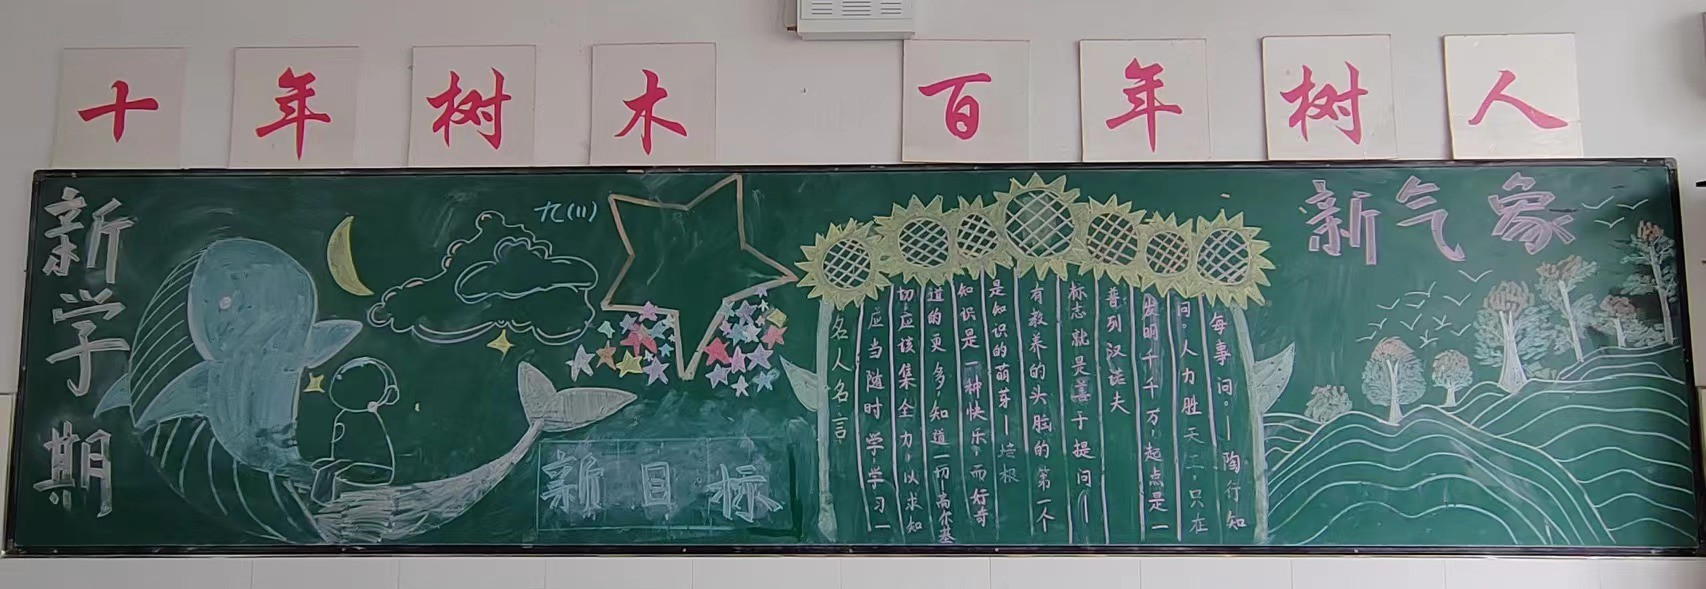 十年树木 百年树人
新学期
九(11)
新目标
名人名言
应当随时学学习一
切应该集全力,以求知
道的更多,知道一切高尔基
知识是一种快乐,而好奇
是知识的萌芽—培根
有教养的头脑的第一个
标志就是善于提问—
普列汉诺夫
发明千千万,起点是一
问。人力胜天工,只在
每事问。—陶行知
新气象